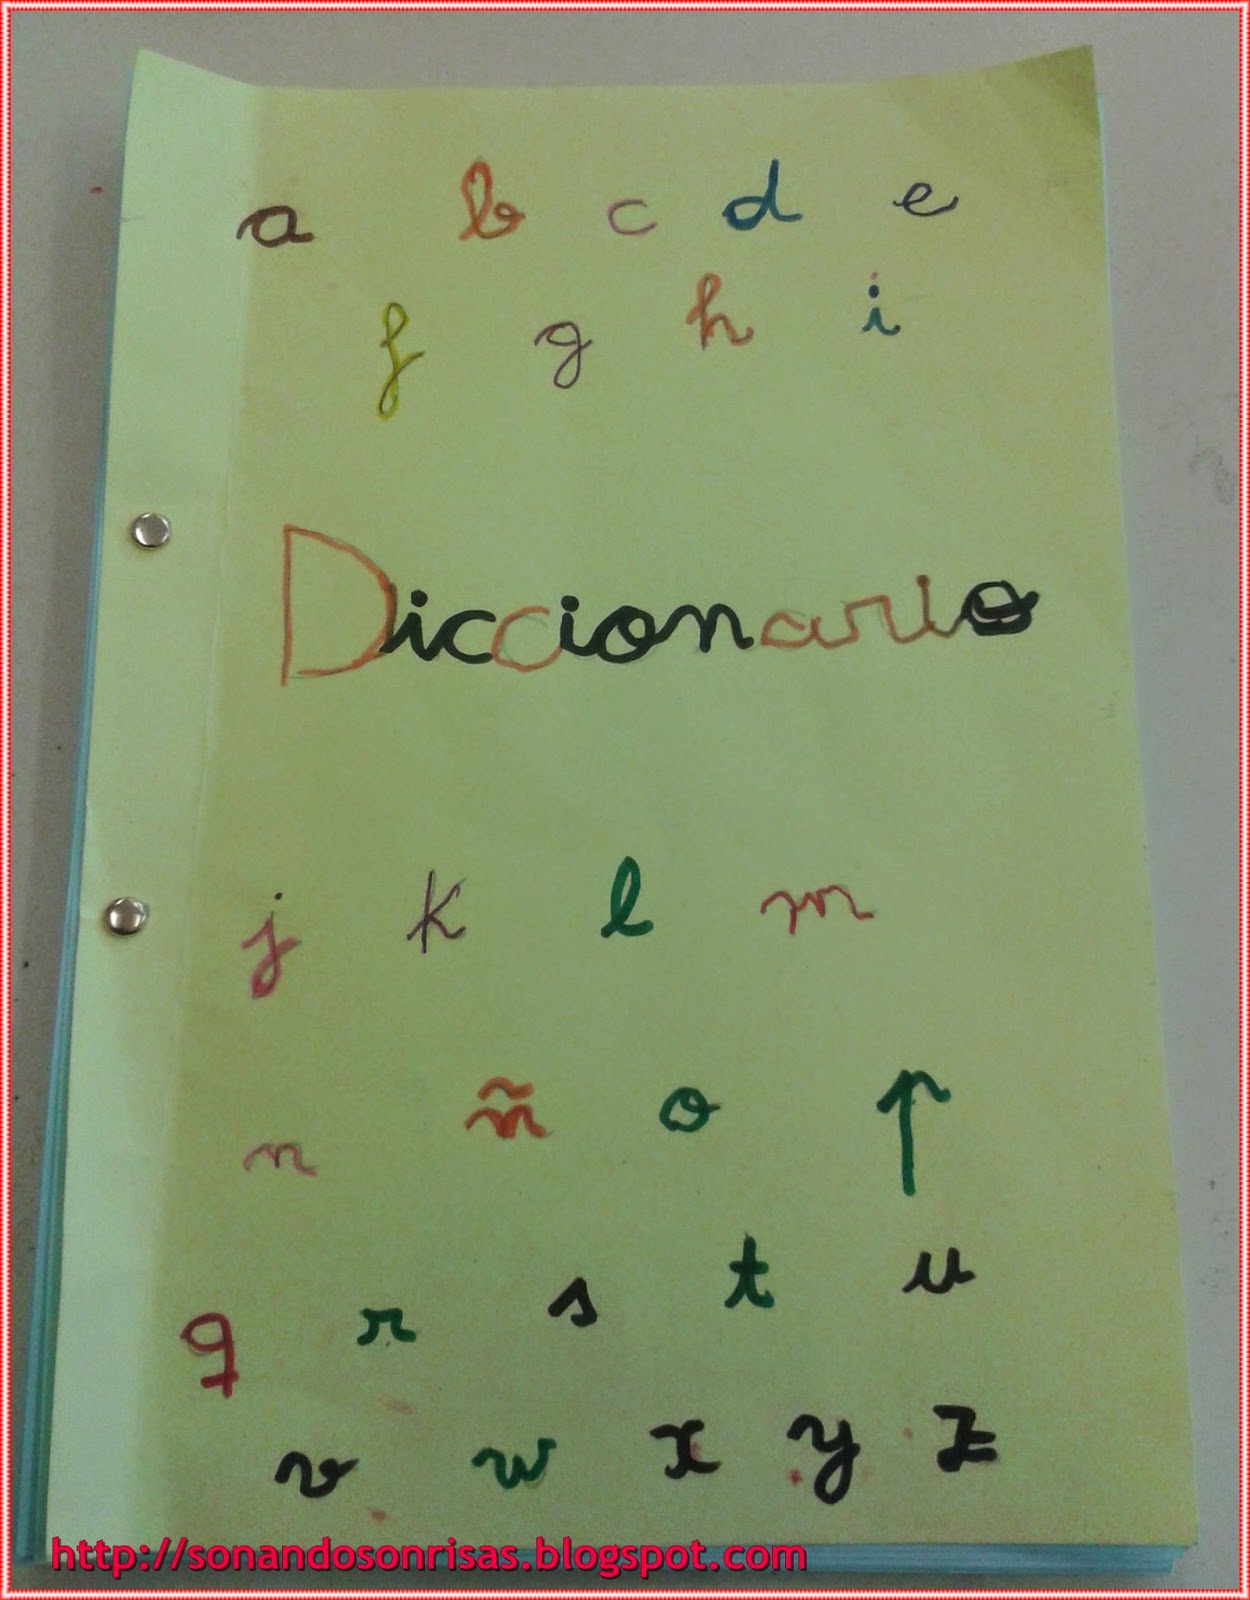 a b c d e
f g h i
Diccionario
j k l m
n ñ o p
q r s t u
v w x y z
http://sonandosonrisas.blogspot.com